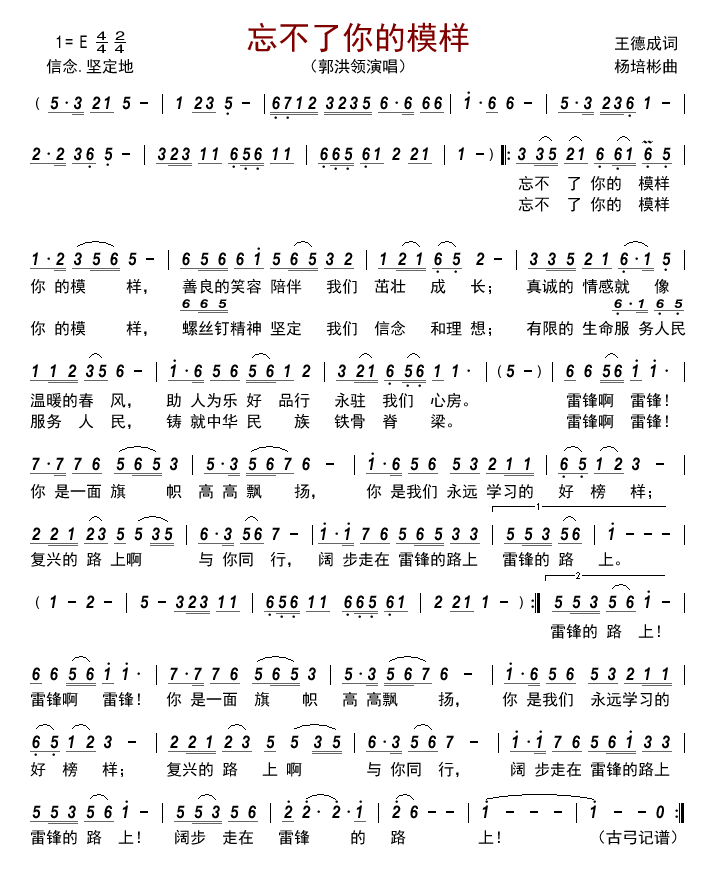 忘不了你的模样
1= E 4/4 2/4
王德成词
信念.坚定地
（郭洪领演唱）
杨培彬曲
( 5·3 21 5 - | 1 23 5 - | 6712 3235 6·6 66 | 1·6 6 - | 5·3 236 1 -
2·2 36 5 - | 323 11 656 11 | 665 61 2 21 | 1 - ) ‖: 3 35 21 6 61 6 5
忘不 了 你的 模样
忘不 了 你的 模样
1·2 356 5 - | 6 5 6 6 1 5 6 5 3 2 | 1 2 1 6 5 2 - | 3 3 5 2 1 6·1 5
你 的模 样， 善良的笑容 陪伴 我们 茁壮 成 长； 真诚的 情感就 像
6 6 5 6·1 6 5
你 的模 样， 螺丝钉精神 坚定 我们 信念 和理 想； 有限的 生命服 务人民
1 1 2 35 6 - | 1·6 5 6 5 6 1 2 | 3 21 6 56 1 1· | (5 - ) | 6 6 56 1 1·
温暖的春 风， 助 人为乐 好 品行 永驻 我们 心房。 雷锋啊 雷锋！
服务 人 民， 铸 就中华 民 族 铁骨 脊 梁。 雷锋啊 雷锋！
7·7 7 6 5 6 5 3 | 5·3 5 6 7 6 - | 1·6 5 6 5 3 2 1 1 | 6 5 1 2 3 -
你 是一面 旗 帜 高 高 飘 扬， 你 是我们 永远 学习的 好 榜 样；
1
2 2 1 23 5 5 35 | 6·3 56 7 - | 1·1 7 6 5 6 5 3 3 | 5 5 3 56 | 1 - - -
复兴的 路 上啊 与 你同 行， 阔 步走在 雷锋的路上 雷锋的 路 上。
2
( 1 - 2 - | 5 - 323 11 | 656 11 665 61 | 2 21 1 - ) :‖ 5 5 3 5 6 1 -
雷锋的 路 上！
6 6 56 1 1· | 7·7 7 6 5 6 5 3 | 5·3 5 6 7 6 - | 1·6 5 6 5 3 2 1 1
雷锋啊 雷锋！ 你 是一面 旗 帜 高 高飘 扬， 你 是我们 永远学习的
6 5 1 2 3 - | 2 2 1 2 3 5 5 3 5 | 6·3 5 6 7 - | 1·1 7 6 5 6 1 3 3
好 榜 样； 复兴的 路 上 啊 与 你同 行， 阔 步走在 雷锋的路上
5 5 3 5 6 1 - | 5 5 3 5 6 | 2 2· 2·1 | 2 6 - - | 1 - - - | 1 - - 0 :‖
雷锋的 路 上！ 阔步 走在 雷锋 的 路 上！ （古弓记谱）